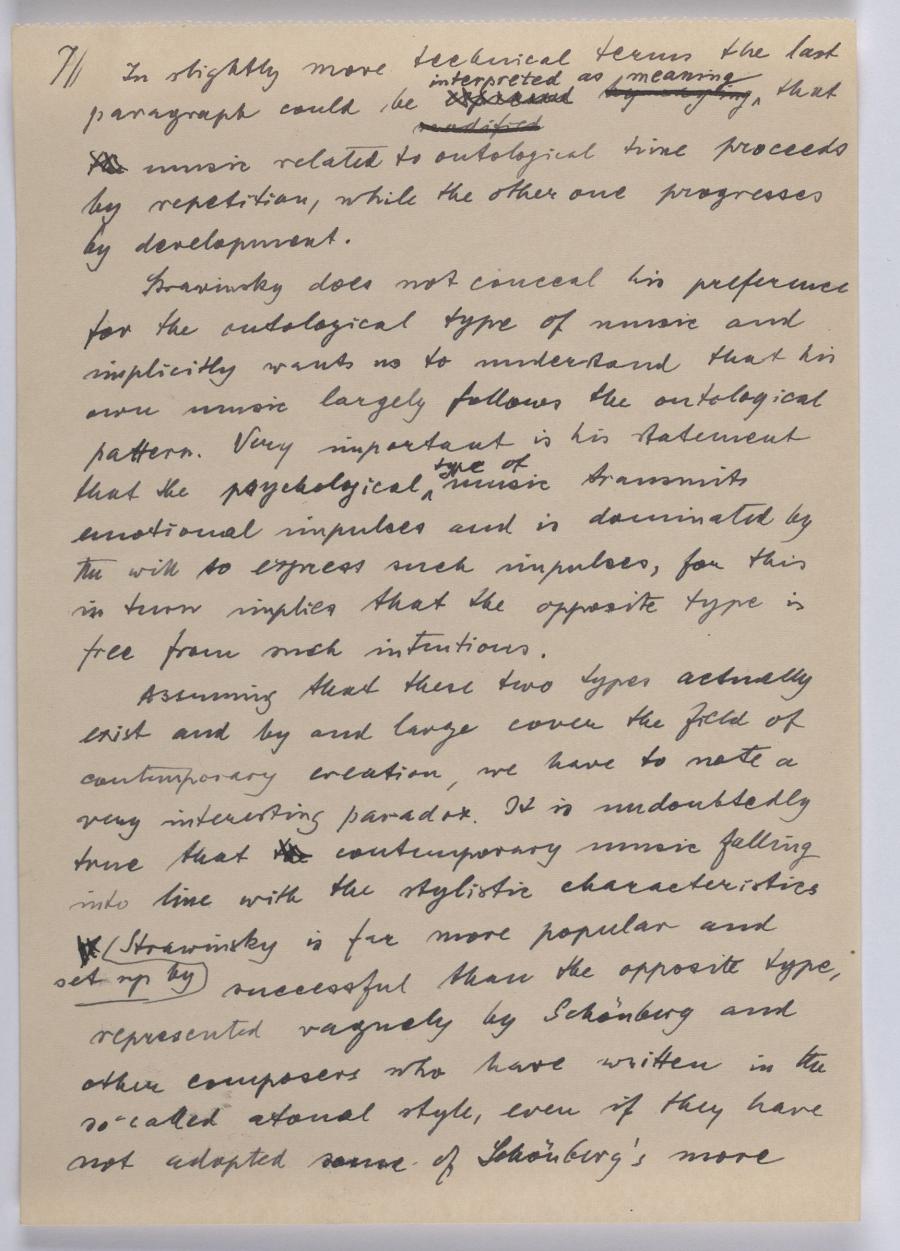 7/
In slightly more technical terms the last
interpreted as meaning
paragraph could be expressed by saying, that
modified
music related to ontological time proceeds
by repetition, while the other one progresses
by development.
Strawinsky does not conceal his preference
for the ontological type of music and
implicitly wants us to understand that his
own music largely follows the ontological
pattern. Very important is his statement
type of
that the psychological music transmits
emotional impulses and is dominated by
the will to express such impulses, for this
in turn implies that the opposite type is
free from such intentions.
Assuming that these two types actually
exist and by and large cover the field of
contemporary creation, we have to note a
very interesting paradox. It is undoubtedly
true that the contemporary music falling
into line with the stylistic characteristics
Strawinsky is far more popular and
set up by successful than the opposite type,
represented vaguely by Schönberg and
other composers who have written in the
so-called atonal style, even if they have
not adopted some of Schönberg's more